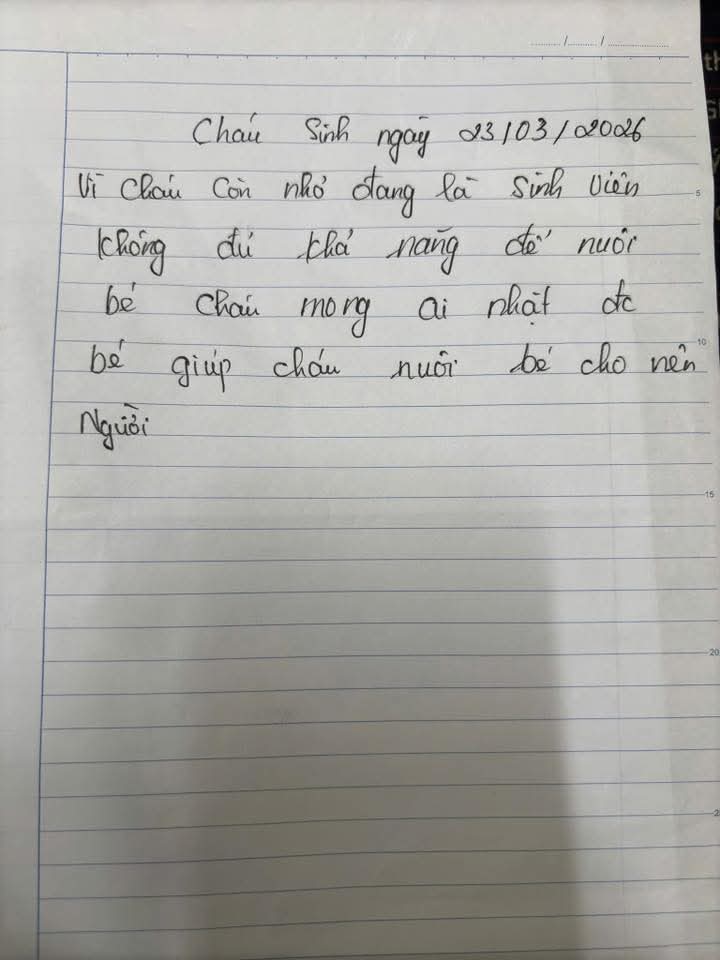 Cháu sinh ngày 23/03/2026
Vì cháu còn nhỏ đang là sinh viên
không đủ khả năng để nuôi
bé cháu mong ai nhặt đc
bé giúp cháu nuôi bé cho nên
Người
5
10
15
20